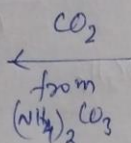 CO₂
from
(NH₄)₂CO₃